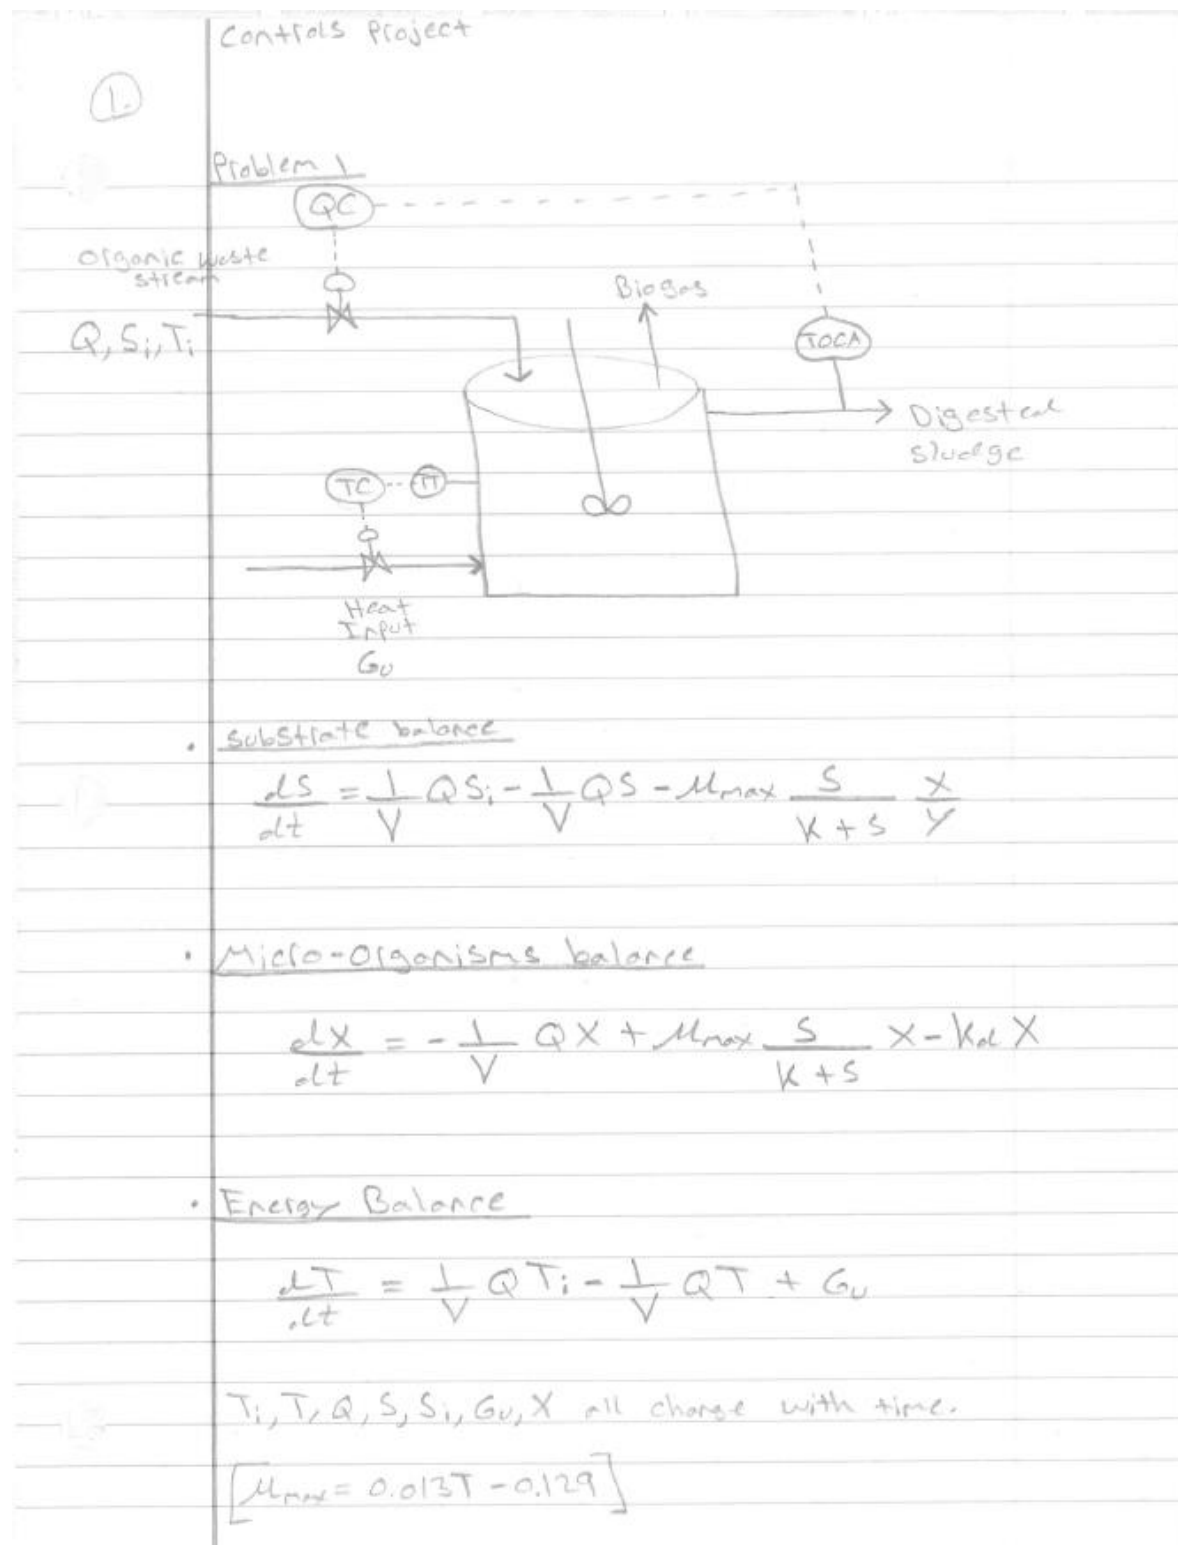 Controls Project
1.
Problem 1
QC
Organic waste
stream
Biogas
Q, Si, Ti
TOCA
Digested
sludge
TC
TT
Heat
Input
Gu
• Substrate balance
dS/dt = 1/V QSi - 1/V QS - μmax S/(K + S) X/Y
• Micro-Organisms balance
dX/dt = - 1/V QX + μmax S/(K + S) X - Kd X
• Energy Balance
dT/dt = 1/V QTi - 1/V QT + Gu
Ti, T, Q, S, Si, Gu, X all change with time.
[μmax = 0.013T - 0.129]